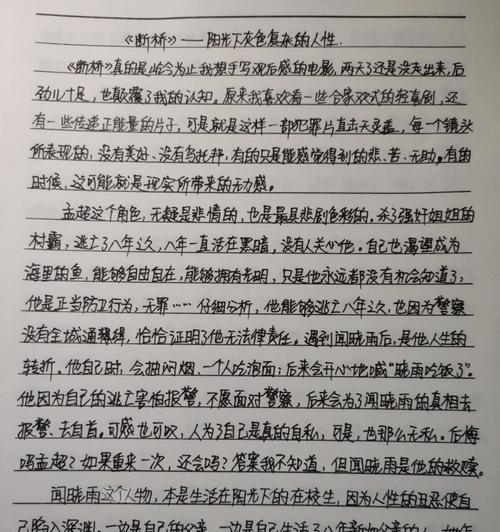 《断桥》——阳光下灰色复杂的人性.
《断桥》真的是迄今为止我想手写观后感的电影,两天了还是没走出来,后
劲儿十足,也颠覆了我的认知。原来我喜欢看一些合家欢式的轻喜剧,还
有一些传递正能量的片子,可是就是这样一部犯罪片直击天灵盖,每一个镜头
所表现的,没有美好、没有乌托邦,有的只是能感觉得到的悲、苦、无助。有的
时候,这可能就是现实所带来的无力感。
孟超这个角色,无疑是悲情的,也是最具悲剧色彩的。杀了强奸姐姐的
村霸,逃亡了八年之久,八年一直活在黑暗,没有人关心他。自己也渴望成为
海里的鱼,能够自由自在,能够拥有光明,只是他永远都没有机会知道了,
他是正当防卫行为,无罪……仔细分析,他能够逃亡八年之久,也因为警察
没有全城通缉得,恰恰证明了他无法律责任。遇到闻晓雨后,是他人生的
转折。他自己时,会抽闷烟,一个人吃泡面;后来会开心地喊“晓雨吃饭了”。
他因为自己的逃亡害怕报警,不愿面对警察,后来会为了闻晓雨的真相去
报警、去自首。可感也可叹,人为了自己是真的自私,可是,也那么无私。后悔
吗孟超?如果重来一次,还会吗?答案我不知道,但闻晓雨是他的救赎。
闻晓雨这个人物,本是生活在阳光下的在校生,因为人性的丑恶使自
己陷入深渊,一边是自己的父亲,一边是自己生活了八年